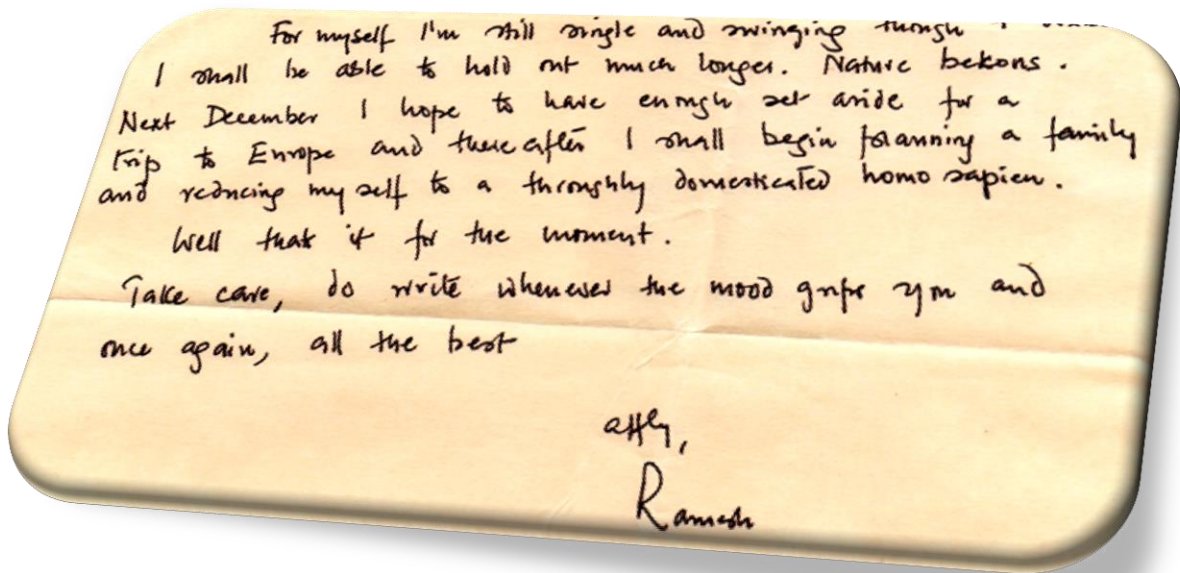 For myself I'm still single and swinging though I
I shall be able to hold out much longer. Nature bekons.
Next December I hope to have enough set aside for a
trip to Europe and thereafter I shall begin planning a family
and reducing my self to a throughly domesticated homo sapien.
Well that it for the moment.
Take care, do write whenever the mood grips you and
once again, all the best
affly,
Ramesh